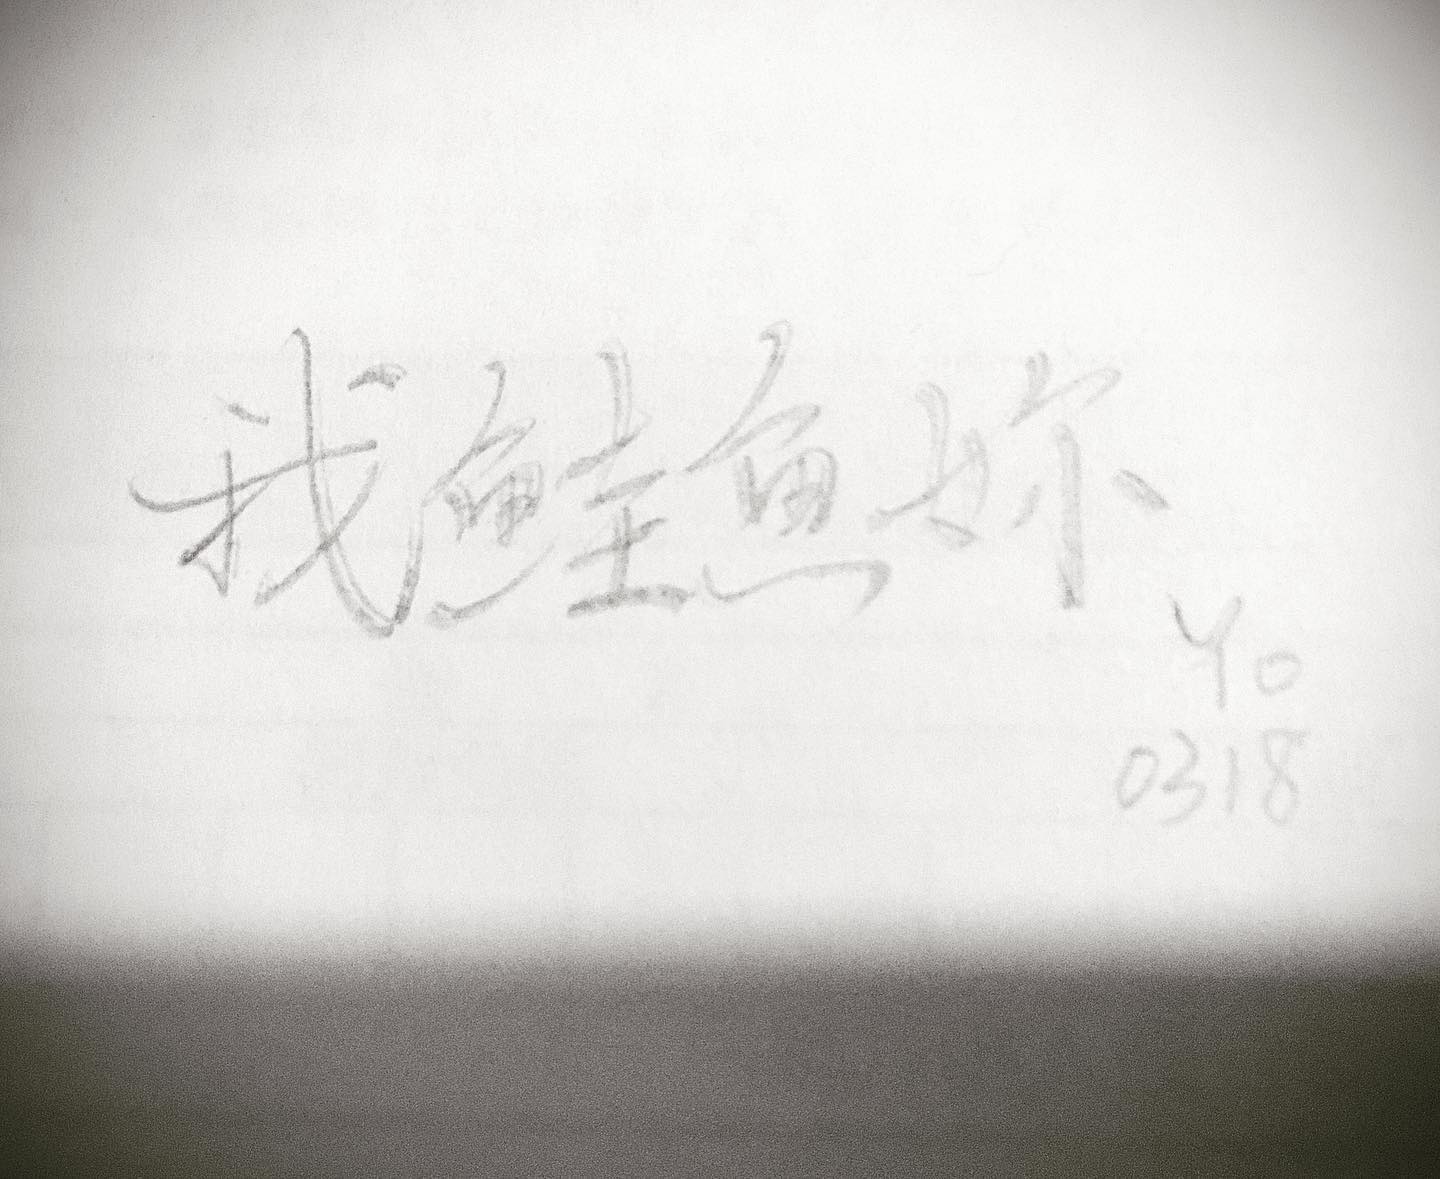 我鮭魚妳
Yo
0318